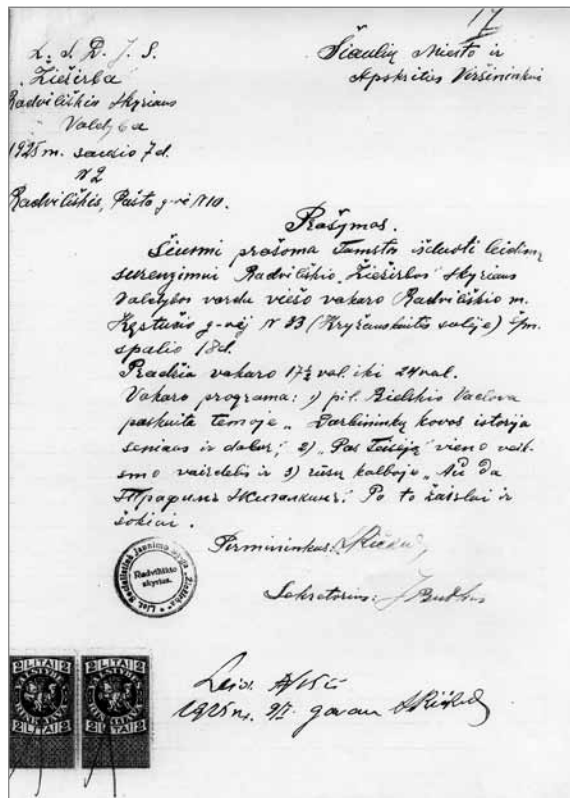 17
L. S. D. J. S.
Žiežirba
Radviliškio skyriaus
Valdyba
1925 m. sausio 7 d.
N 2
Radviliškis, Pašto g-vė N 10.
Šiaulių Miesto ir
Apskrities Viršininkui
Prašymas.
Šiuomi prašoma Tamstos išduoti leidimą
surengimui Radviliškio „Žiežirbos" skyriaus
Valdybos vardu viešo vakaro Radviliškio m.
Kęstučio g-vėj N 33 (Kryžauskaitės salėje) š/m.
spalio 18 d.
Pradžia vakaro 17½ val. iki 24 val.
Vakaro programa: 1) pil. Bielskio Vaclova
paskaita temoje „Darbininkų kovos istorija
seniaus ir dabar; 2) „Pas Teisėją" vieno veik-
smo vaizdelis ir 3) rūsų kalboje „Ай да
Трафинъ". Po to žaislai ir
šokiai.
Pirmininkas:
Sekretorius: J Butkus
Radviliškio
skyrius.
2 LITAI 2
VALSTYBĖS
RINKLIAVA
2 LITAI 2
2 LITAI 2
VALSTYBĖS
RINKLIAVA
2 LITAI 2
Leid.
1925 m. gavau